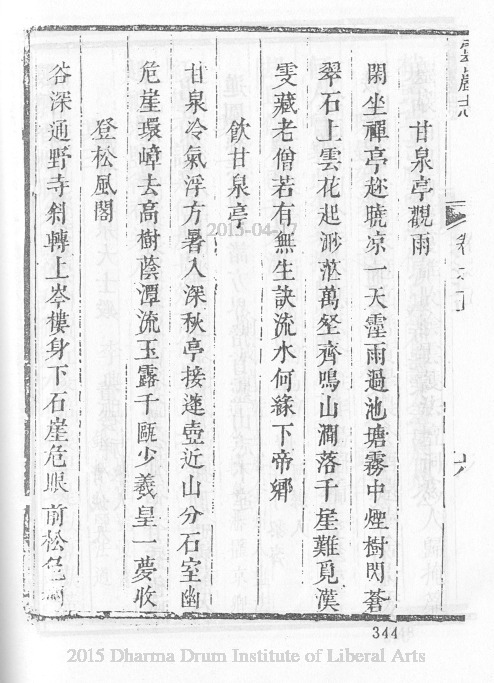 甘泉亭觀雨
閑坐禪亭趂曉凉一天霪雨過池塘霧中煙樹閃蒼
翠石上雲花起渺茫萬壑齊鳴山澗落千崖難覓漢
雯藏老僧若有無生訣流水何緣下帝鄉
飲甘泉亭
甘泉冷氣浮方暑入深秋亭接蓮壺近山分石室幽
危崖環嶂去高樹蔭潭流玉露千甌少羲皇一夢收
登松風閣
谷深通野寺斜轉上岑樓身下石崖危眼前松色
卷之
六
2015-04-17
344
2015 Dharma Drum Institute of Liberal Arts